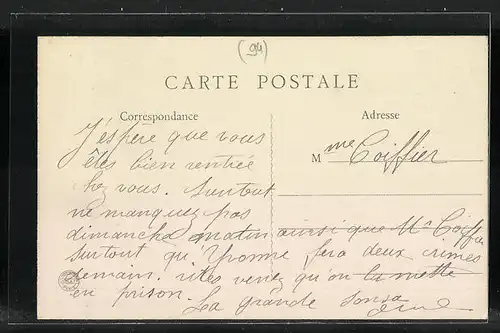 (94)
CARTE POSTALE
Correspondance
Adresse
J'espère que vous
êtes bien rentrée
chez vous. Surtout
ne manquez pas
dimanche matin ainsi que Mr Coiffier
surtout qu'Yvonne fera deux crimes
demain. vites venez qu'on la mette
en prison. La grande
Mme Coiffier